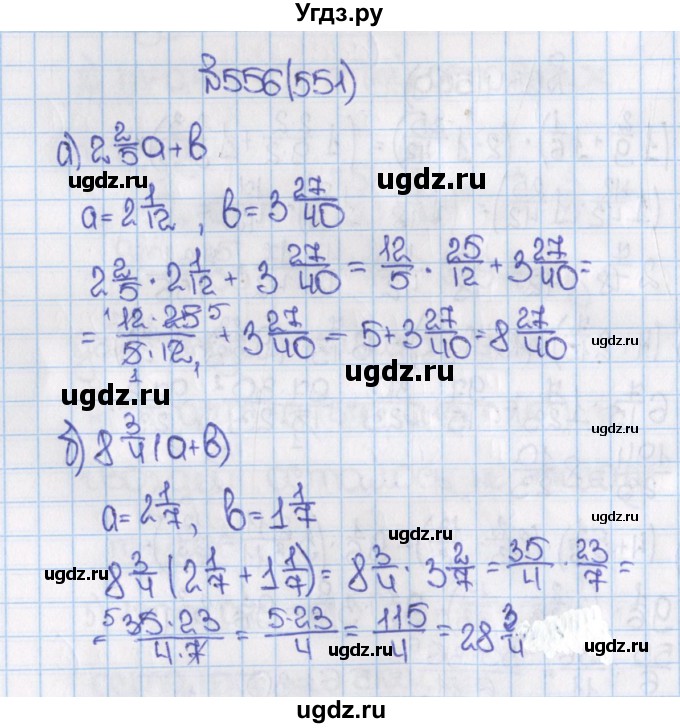 Угдз.ру
№556(551)
а) 2 2/5 a + в
ugdz.ru ugdz.ru
a = 2 1/12 , в = 3 27/40
2 2/5 · 2 1/12 + 3 27/40 = 12/5 · 25/12 + 3 27/40 =
ugdz.ru
= 12·25/5·12 + 3 27/40 = 5 + 3 27/40 = 8 27/40
ugdz.ru
ugdz.ru
ugdz.ru
б) 8 3/4 (a + в)
a = 2 1/7 , в = 1 1/7
ugdz.ru
ugdz.ru
8 3/4 (2 1/7 + 1 1/7) = 8 3/4 · 3 2/7 = 35/4 · 23/7 =
= 35·23/4·7 = 5·23/4 = 115/4 = 28 3/4
ugdz.ru ugdz.ru
ugdz.ru